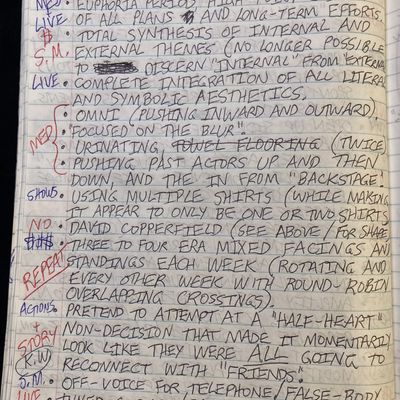 MED • EUPHORIA PERIOD
LIVE OF ALL PLANS AND LONG-TERM EFFORTS.
$ • TOTAL SYNTHESIS OF INTERNAL AND
S.M. EXTERNAL THEMES (NO LONGER POSSIBLE
TO DISCERN "INTERNAL" FROM "EXTERNAL
LIVE • COMPLETE INTEGRATION OF ALL LITERAL
AND SYMBOLIC AESTHETICS.
• OMNI (PUSHING INWARD AND OUTWARD)
MED • "FOCUSED ON THE BLUR".
• URINATING, TOWEL FLOORING (TWICE)
• PUSHING PAST ACTORS UP AND THEN
DOWN, AND THE IN FROM "BACKSTAGE".
SHOWS • USING MULTIPLE SHIRTS (WHILE MAKING
IT APPEAR TO ONLY BE ONE OR TWO SHIRTS
NO • DAVID COPPERFIELD (SEE ABOVE/FOR SHAPE
$$$ • THREE TO FOUR ERA MIXED FACINGS AND
REPEAT STANDINGS EACH WEEK (ROTATING AND
EVERY OTHER WEEK WITH ROUND-ROBIN
OVERLAPPING CROSSINGS).
ACTIONS • PRETEND TO ATTEMPT AT A "HALF-HEART"
+ NON-DECISION THAT MADE IT MOMENTARILY
STORY LOOK LIKE THEY WERE ALL GOING TO
K.W. RECONNECT WITH "FRIENDS".
S.M. • OFF-VOICE FOR TELEPHONE/FALSE-BODY
LIVE